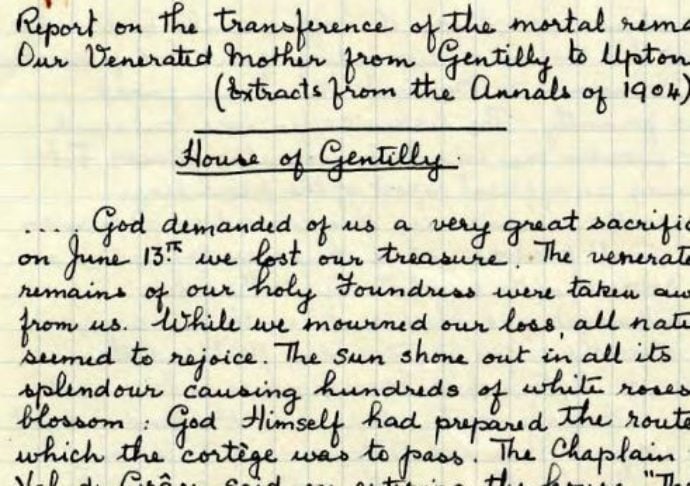 Report on the transference of the mortal rema
Our Venerated Mother from Gentilly to Upton
(Extracts from the Annals of 1904)
House of Gentilly.
.... God demanded of us a very great sacrific
on June 13th we lost our treasure. The venerate
remains of our holy Foundress were taken aw
from us. While we mourned our loss, all natu
seemed to rejoice. The sun shone out in all its
splendour causing hundreds of white roses
blossom : God Himself had prepared the route
which the cortège was to pass. The Chaplain
Val de Grâce said on entering the house "Th